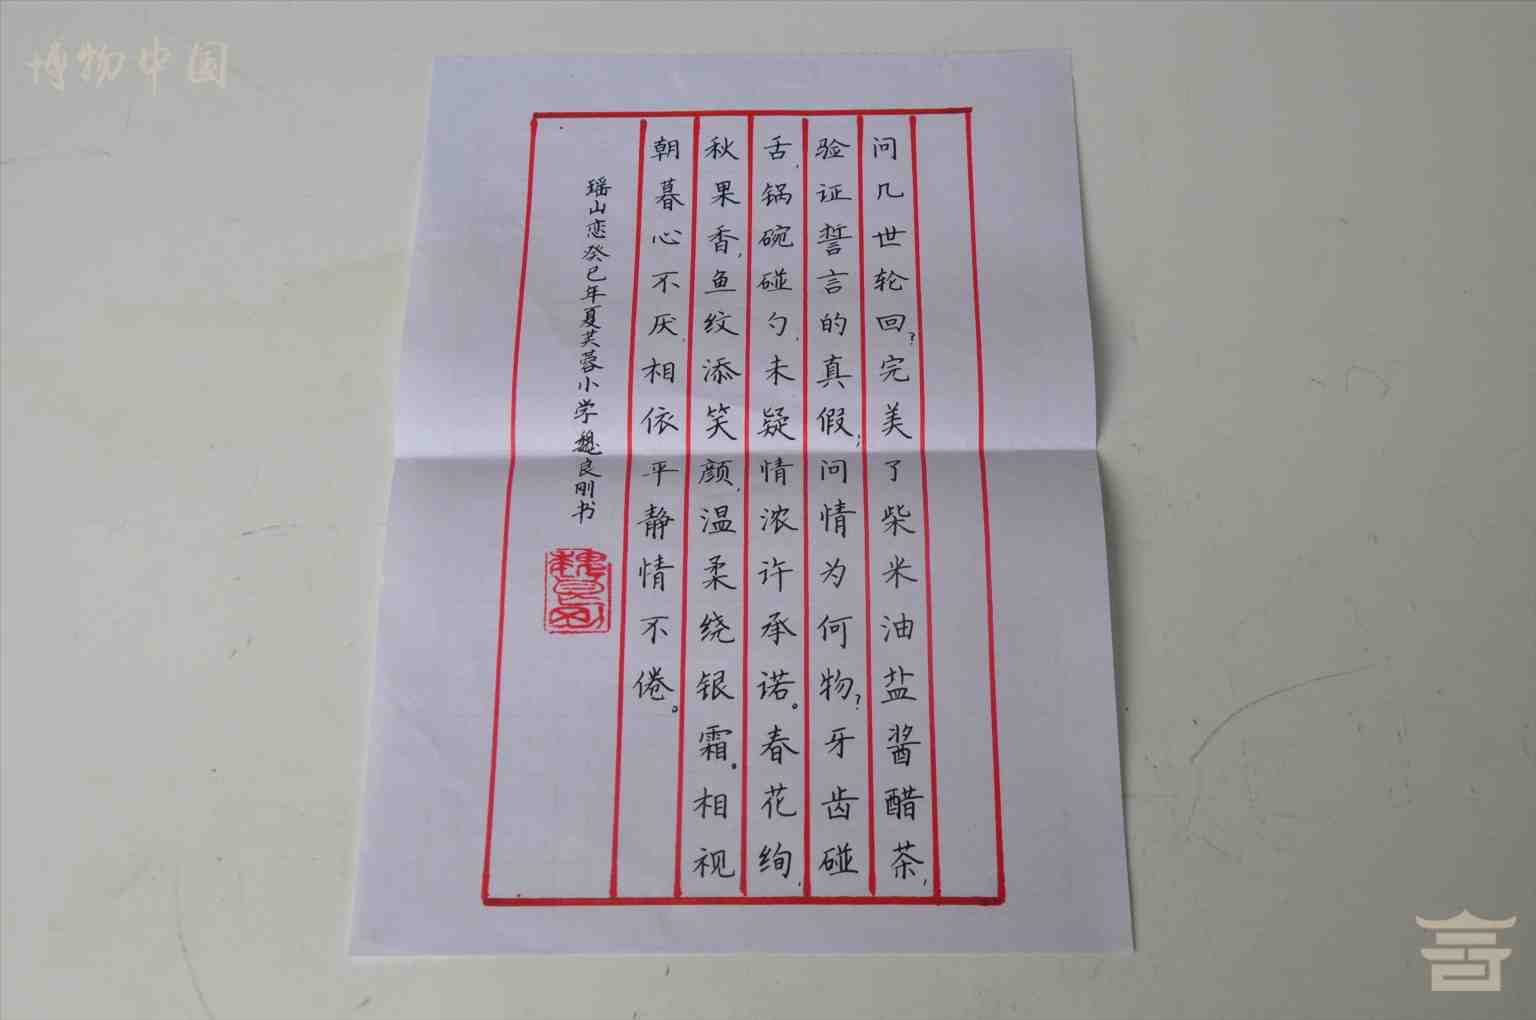 博物中国
问几世轮回?完美了柴米油盐酱醋茶,
验证誓言的真假;问情为何物?牙齿碰
舌,锅碗碰勺,未疑情浓许承诺。春花绚,
秋果香,鱼纹添笑颜,温柔绕银霜。相视
朝暮心不厌,相依平静情不倦。
瑶山恋癸巳年夏芙蓉小学魏良刚书
魏良刚